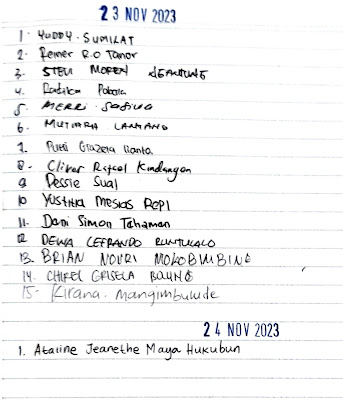 23 NOV 2023
1. YUDDY. SUMILAT
2. Reiner R.O Tanor
3. STEVI MOREN
4. Radika Pabala
5. MERRI
6. MUTIARA
7. Putri Grazela
8. Cliver Rafael Kindangen
9. Dessie Sual
10. YUSTIKA MESIAS REPI
11. Dani Simon Tahaman
12. DEWA LEFRANDO RUNTULALO
13. BRIAN NOURI MOKOBIMBING
14. CHIREL GRISELA
15. Kirana. Mangimbulude
24 NOV 2023
1. Ataline Jeanethe Maya Hukubun